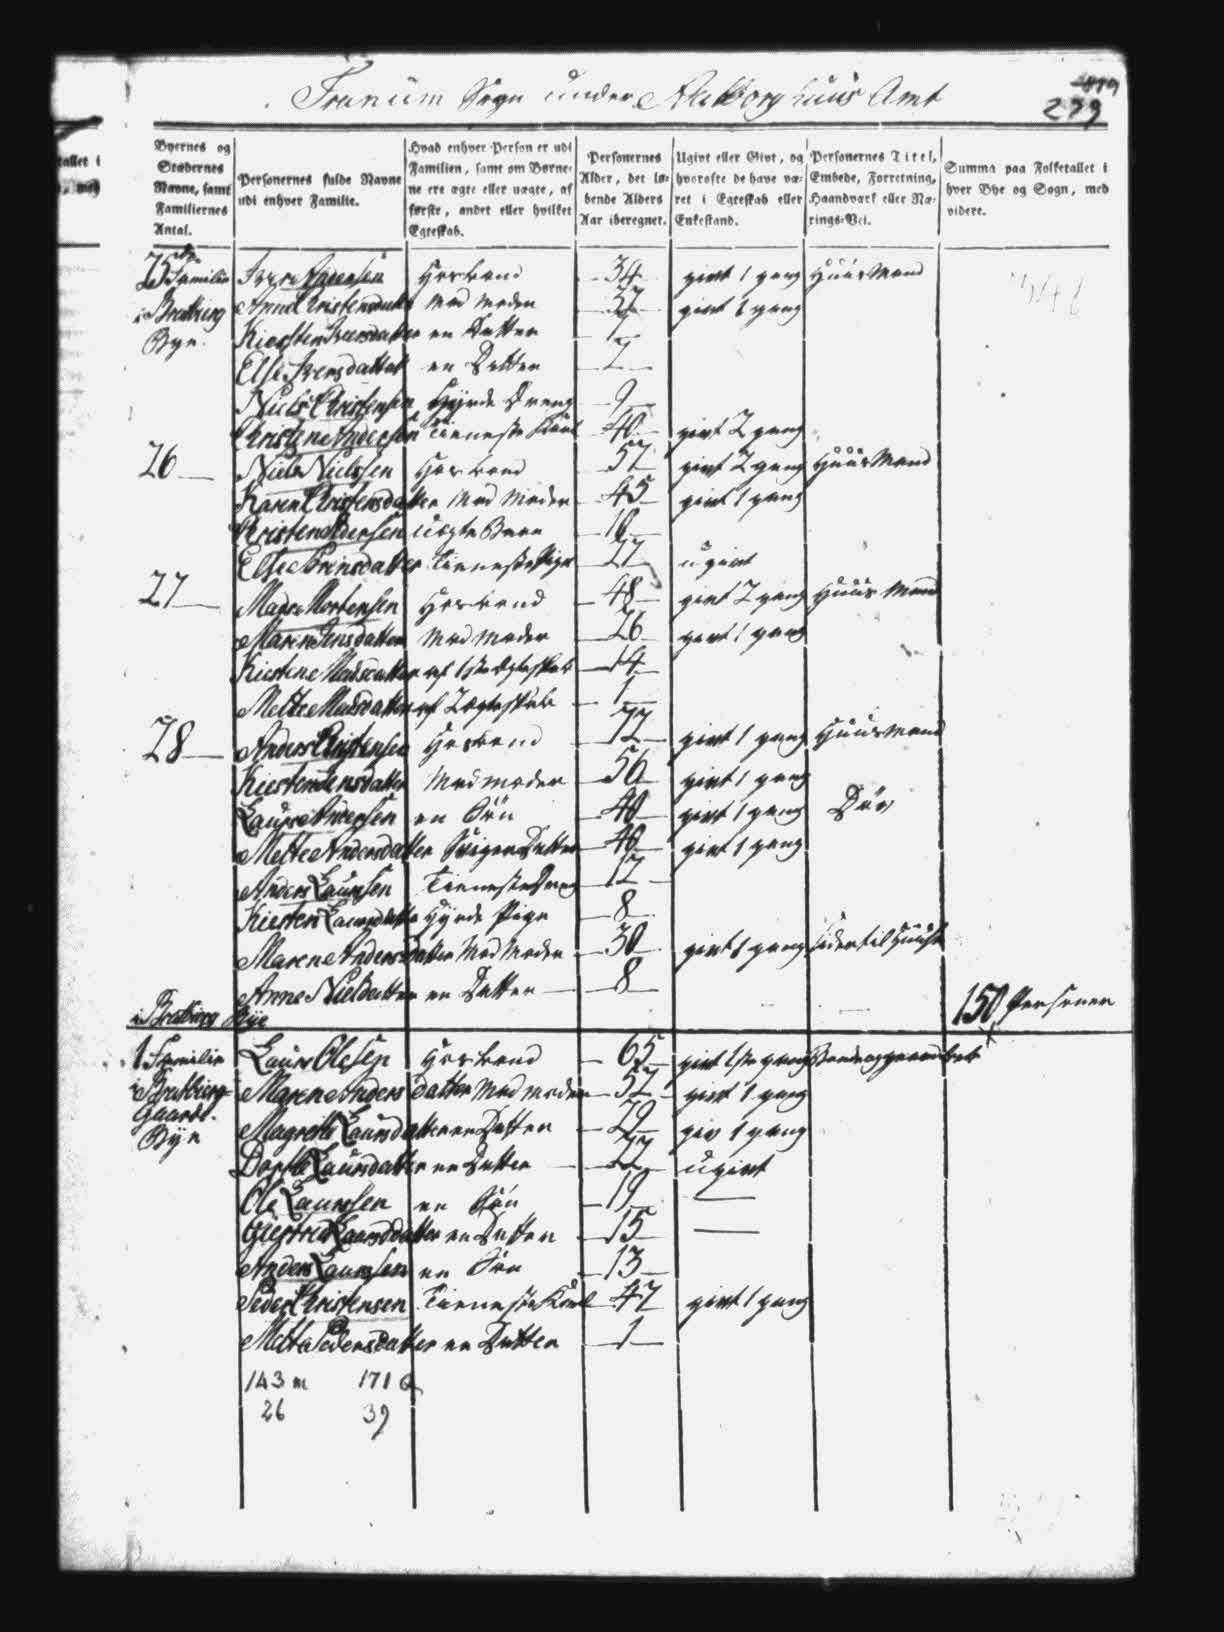 Tranum Sogn under Aalborghuus Amt
279
Byernes og Stædernes Navne, samt Familiernes Antal.
Personernes fulde Navne udi enhver Familie.
Hvad enhver Person er udi Familien, samt om Børnene ere ægte eller uægte, af første, andet eller hvilket Egteskab.
Personernes Alder, det løbende Alders Aar iberegnet.
Ugivt eller Givt, og hvorofte de have været i Egteskab eller Enkestand.
Personernes Titel, Embede, Forretning, Haandværk eller Nærings-Vei.
Summa paa Folketallet i hver Bye og Sogn, med videre.
25 Familie Iver Hosbond 34 givt 1 gang Huusmand
i Bratbierg Anne Christensdatter Madmoder 37 givt 1 gang
Bye Kiersten Iversdatter en Datter 7
Else Iversdatter en Datter 2
Niels Christensen Hyrde Dreng 9
Christen Andersen Tieneste Karl 40 givt 2 gang
26 Niels Nielssen Hosbond 57 givt 2 gang Huusmand
Karen Christensdatter Madmoder 45 givt 1 gang
Christen Pedersen Uægte Barn 10
Else Tieneste Pige 27 ugivt
27 Mads Mortensen Hosbond 48 givt 2 gang Huusmand
Maren Jensdatter Madmoder 26 givt 1 gang
Kirstine Madsdatter af 1ste Ægteskab 14
Mette Madsdatter af 2 Ægteskab 1
28 Anders Christensen Hosbond 72 givt 1 gang Huusmand
Kiersten Jensdatter Madmoder 56 givt 1 gang
Laurs Andersen en Søn 40 givt 1 gang Døv
Mette Andersdatter Sviger Datter 40 givt 1 gang
Anders Laursen Tieneste Dreng 12
Kiersten Laursdatter Hyrde Pige 8
Maren Andersdatter Madmoder 30 givt 1 gang Sider til Huuse
Anne Nielsdatter en Datter 8
i Bratbierg Bye 150 Personer
1 Familie Laurs Olesen Hosbond 65 givt 1ste gang Bonde og gaardbeb
i Bratbierg Maren Andersdatter Madmoder 52 givt 1 gang
Gaards Magrethe Laursdatter en Datter 29 giv 1 gang
Bye Dorthe Laursdatter en Datter 22 ugivt
Ole Laursen en Søn 19 —
Laursdatter en Datter 15 —
Anders Laursen en Søn 13
Peder Christensen Tieneste Karl 47 givt 1 gang
Mette Pedersdatter en Datter 1
143 m 171 Q
26 39